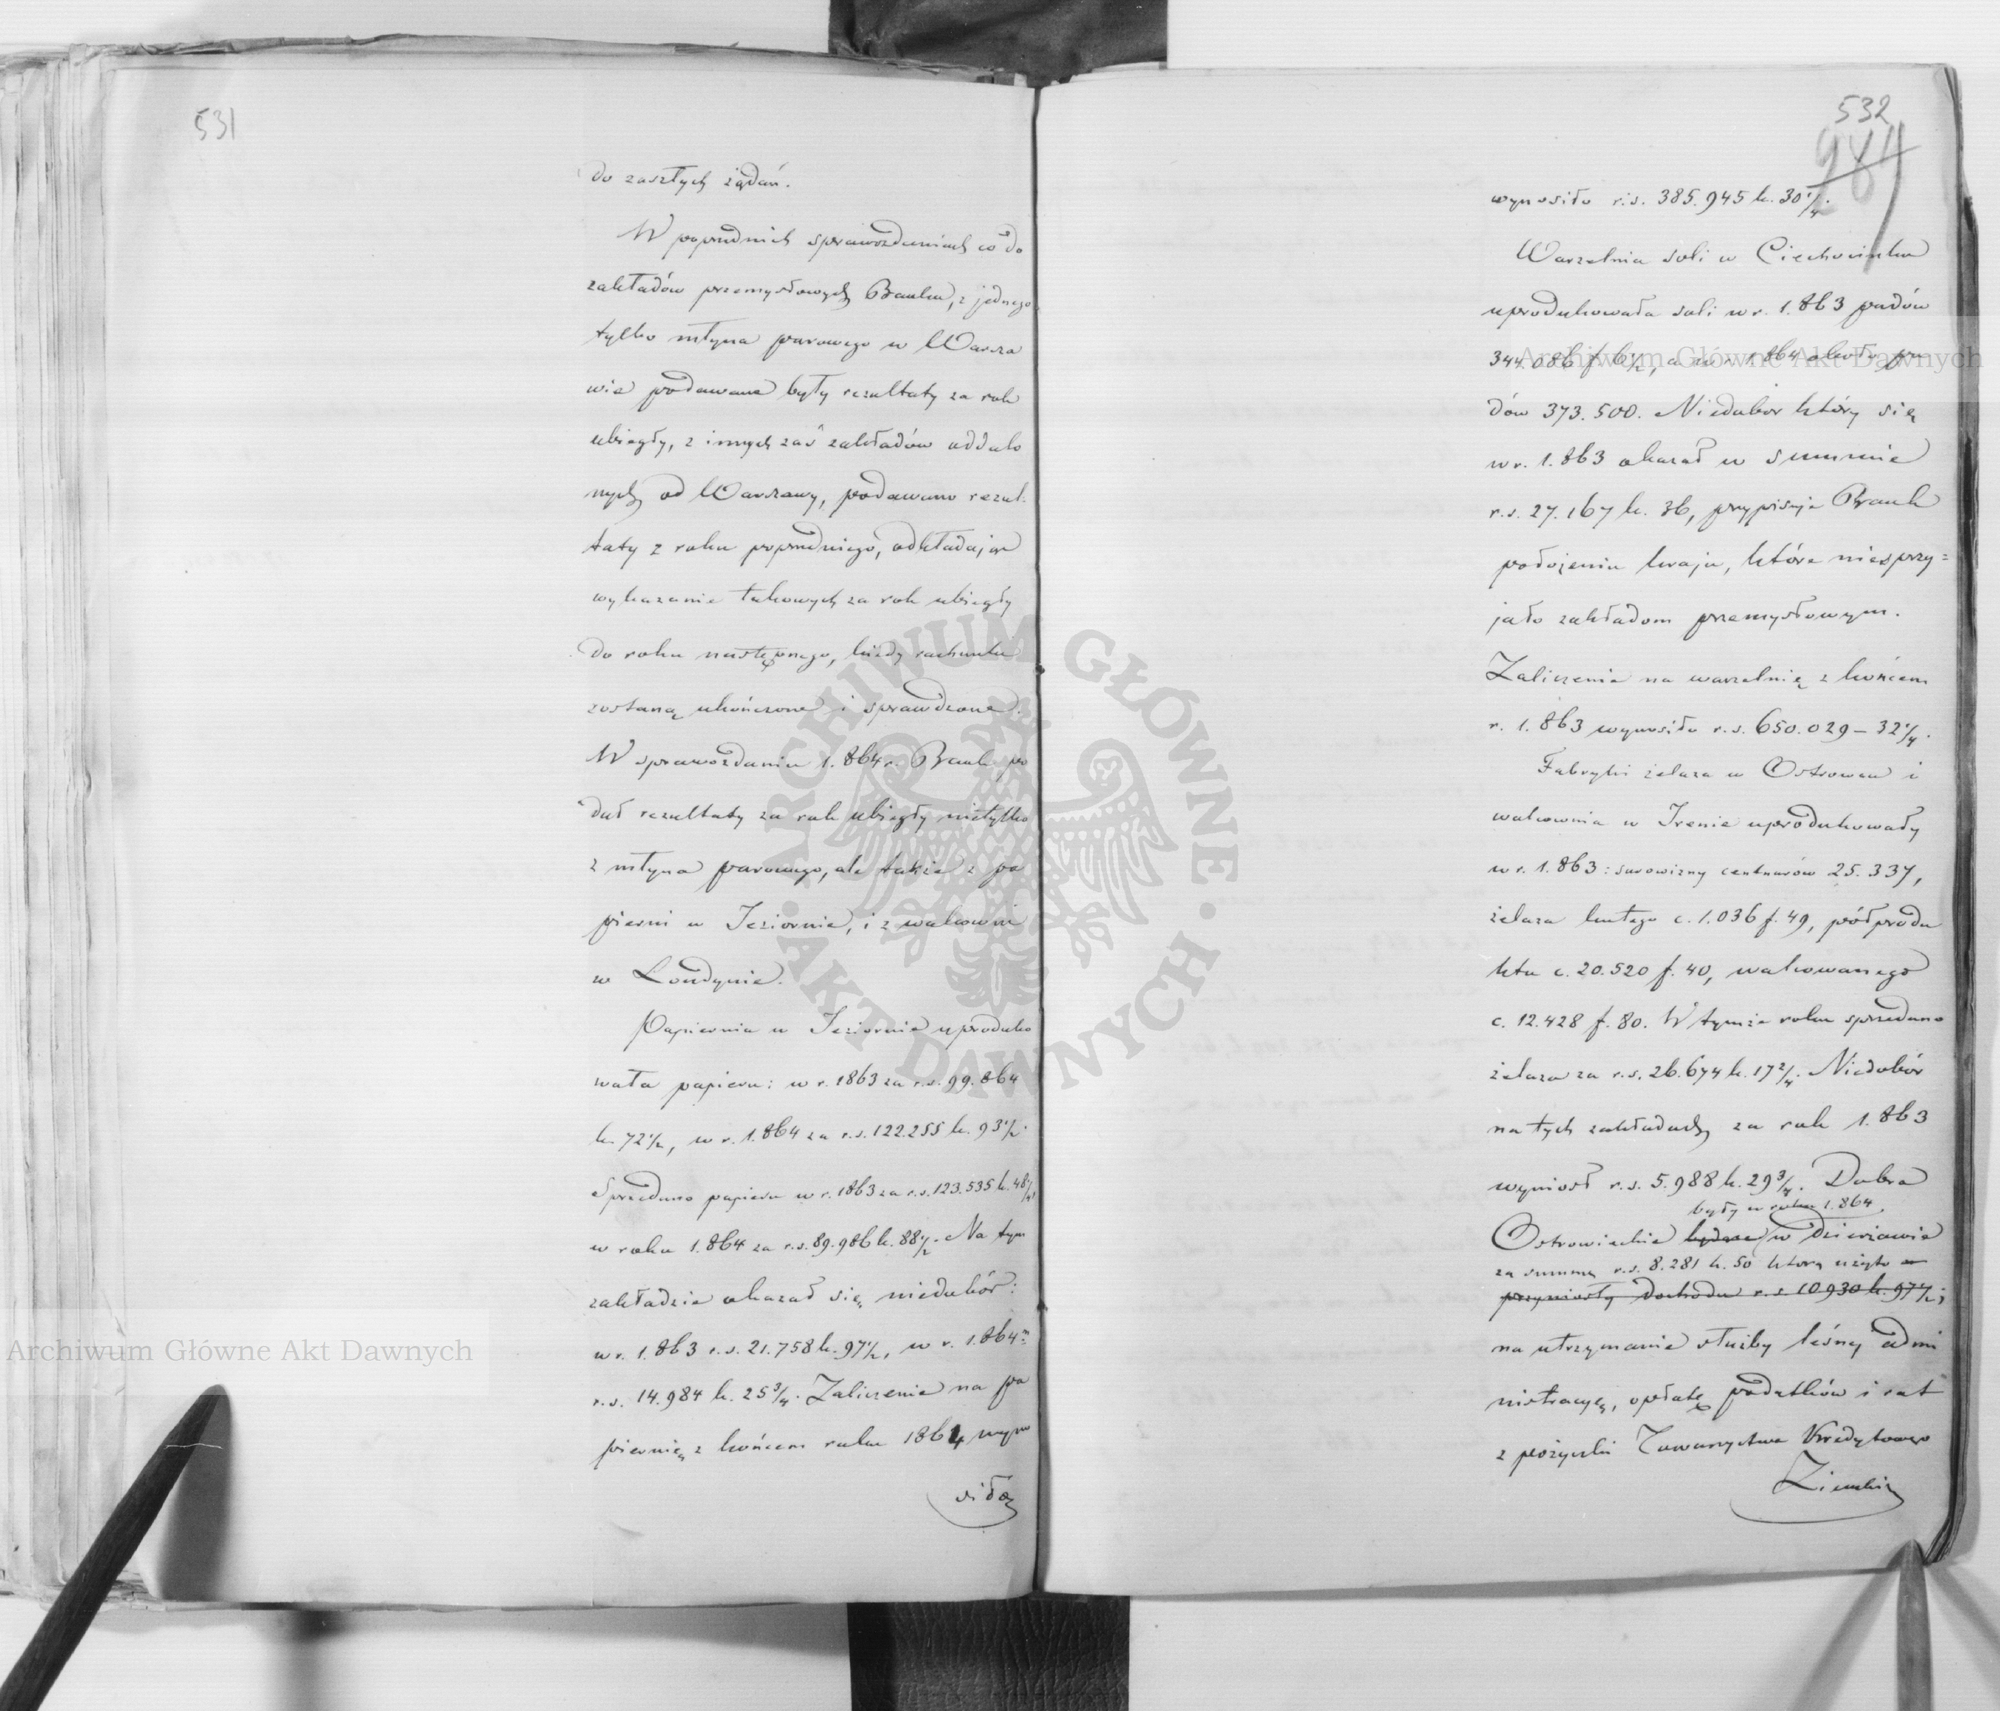 531
do zaszłych żądań.
W poprzednich sprawozdaniach co do
zakładów przemysłowych Banku, z jednego
tylko młyna parowego w Warsza
wie podawane były rezultaty za rok
ubiegły, z innych zaś zakładów oddalo
nych od Warszawy, podawano rezul-
taty z roku poprzedniego, odkładając
wykazanie takowych za rok ubiegły
do roku następnego, kiedy rachunki
zostaną ukończone i sprawdzone.
W sprawozdaniu 1.864 r. Bank po
dał rezultaty za rok ubiegły nietylko
z młyna parowego, ale także z pa
pierni w Jeziornie, i z walcowni
w Londynie.
Papiernia w Jeziornie uproduko
wała papieru: w r. 1863 za r.s. 99.864
k. 72 1/2, w r. 1.864 za r.s. 122.255 k. 93 1/2.
Sprzedano papieru w r. 1863 za r.s. 123.535 k. 48
w roku 1.864 za r.s. 89.986 k. 88 1/2. Na tym
zakładzie okazał się niedobór:
w r. 1.863 r.s. 21.758 k. 97 1/2, w r. 1.864
r.s. 14.984 k. 25 3/4. Zaliczenie na pa
piernię z końcem roku 1864 wyno
siło
532
984
wynosiło r.s. 385.945 k. 30 1/4.
Warzelnia soli w Ciechocinku
uprodukowała soli w r. 1.863 pudów
344.086 f. 6 1/2, a w r. 1.864 około pu
dów 373.500. Niedobór który się
w r. 1.863 okazał w summie
r.s. 27.167 k. 36, przypisuje Bank
położeniu kraju, które niesprzy=
jało zakładom przemysłowym.
Zaliczenie na warzelnię z końcem
r. 1.863 wynosiło r.s. 650.029 – 32 1/4.
Fabryki żelaza w Ostrowcu i
walcownia w Irenie uprodukowały
w r. 1.863: surowizny centnarów 25.337,
żelaza kutego c. 1.036 f. 49, półprodu
ktu c. 20.520 f. 40, walcowanego
c. 12.428 f. 80. W tymże roku sprzedano
żelaza za r.s. 26.674 k. 17 2/4. Niedobór
na tych zakładach za rok 1.863
wyniosł r.s. 5.988 k. 29 3/4. Dobra
były w roku 1.864
Ostrowieckie będące w dzierżawie
za summę r.s. 8.281 k. 50 którą użyto
przyniosły dochodu r.s. 10930 k. 97 1/2;
na utrzymanie służby leśnej admi
nistracyę, opłatę podatków i rat
z pożyczki Towarzystwa Kredytowego
Ziemski
Archiwum Główne Akt Dawnych
Archiwum Główne Akt Dawnych
· ARCHIWUM GŁÓWNE · AKT DAWNYCH